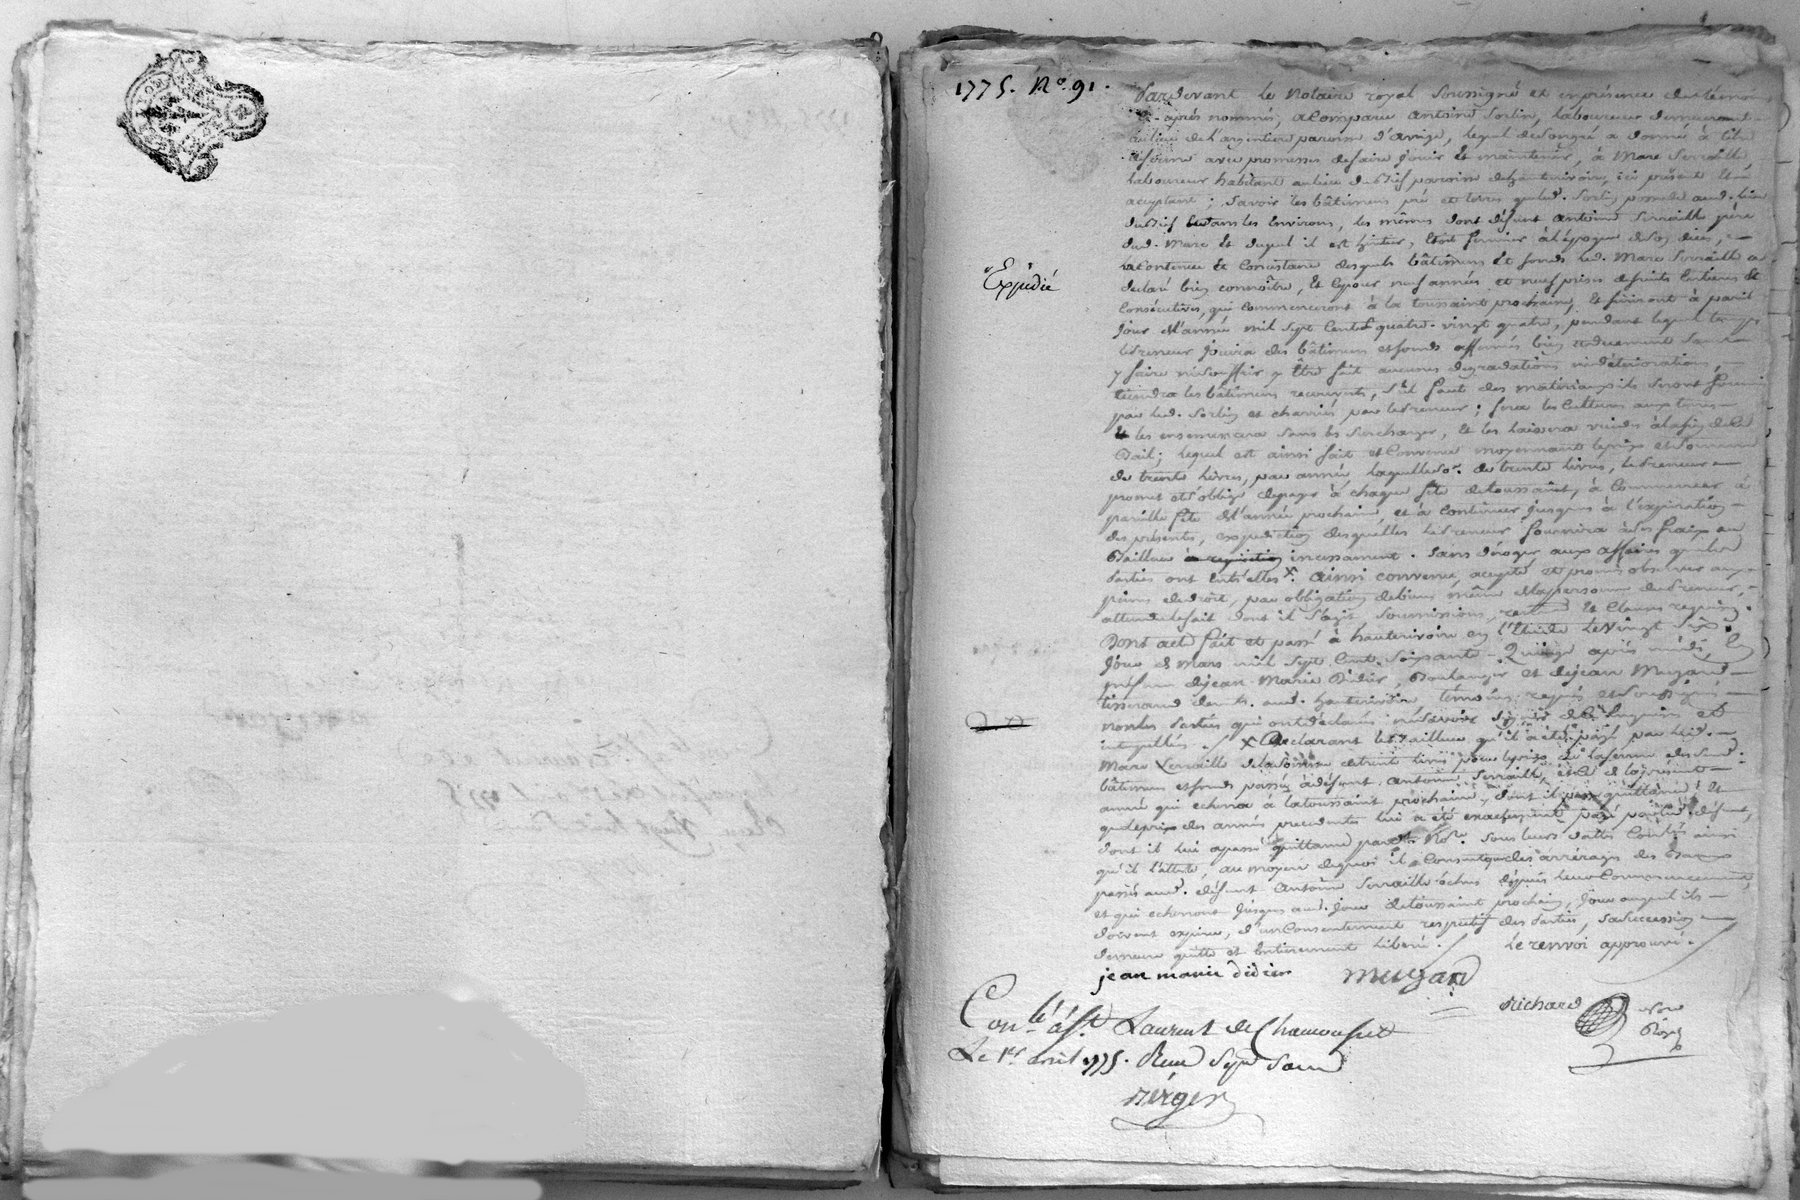 1775. N° 91.
Pardevant le Notaire royal soussigné et en présence des témoins
après nommés, a Comparu antoine Sorlin, laboureur demeurant
au lieu de l'argentiere paroisse d'amige, lequel de son gré a donné à titre
de ferme avec promesses de faire jouir et maintenir, à Marc Serraille,
laboureur habitant au lieu du Rif paroisse de hauterivoire, ici présent et
acceptant ; Savoir les bâtimens pré et terres que led. Sorlin possede aud. lieu
du Rif et dans les Environs, les mêmes dont défunt antoine Serraille père
dud. Marc et duquel il est héritier, étoit fermier à l'époque de son décès,
la Contenue et Consistance desquels bâtimens et fonds led. Marc Serraille a
declaré bien connoître, et ce pour neuf années et neuf prises de fruits Entieres et
Consécutives, qui commenceront à la toussaint prochaine, et finiront à pareil
jour de l'année mil sept cents quatre-vingt quatre, pendant lequel temps
le Preneur jouira des bâtimens et fonds affermés bien et duement sans
y faire ni souffrir y être fait aucunes degradations ni détériorations,
tiendra les bâtimens recouverts, s'il faut des matériaux ils seront fournis
par led. Sorlin et charriés par le Preneur ; fera les Cultures aux terres
& les ensemencera sans les Surcharger, et les laissera vuides à la fin de ce
Bail ; lequel est ainsi fait et Convenu moyennant le prix et Somme
de trente Livres, par année laquelle So.e de trente Livres, le Preneur
promet et s'oblige de payer à chaque fête de toussaint, à Commencer à
pareille fête de l'année prochaine, et à Continuer jusques à l'expiration
des présentes, expedition desquelles le Preneur fournira à ses fraix au
Bailleur à requisition incessament. Sans déroger aux affaires que les
Parties ont Entr'elles X. ainsi convenu, accepté et promis observer aux
peines de droit, par obligation de biens même de la personne du Preneur,
attendu le fait dont il s'agit, Soumissions, et Clauses requises.
Dont acte fait et passé à hauterivoire en l'Etude le vingt six
jour de Mars mil sept Cent Soixante-Quinze après midi, En
présence de jean Marie Didier, Boulanger et de jean Muzard
tisserand dem.ts aud. hauterivoire témoins requis et Soussignés
non les Parties qui ont declaré ne savoir signer de ce Enquises et
interpellés. / X Declarant le Bailleur qu'il a été payé par led.
Marc Serraille de la Somme de trente livres pour le prix de la ferme desdits
bâtimens et fonds passés à défunt antoine Serraille, de la présente
année qui echerra à la toussaint prochaine, dont il passe quittance ; Et
que le prix des années precedentes lui a été exactement payé par led. défunt,
dont il lui a passé quittance par d.t No.re sous leurs dattes Contés ainsi
qu'il l'atteste, au moyen de quoi il a Consenti que les arrérages des Baux
passés aud. défunt Antoine Serraille échus depuis leur Commencement,
et qui echerront jusques aud. jour de toussaint prochain, jour auquel ils
doivent expirer, d'un Consentement respectif des Parties, sa Succession
demeure quitte et Entierement Liberée. / Le renvoi approuvé.
Expédié
jean marie didier
muzard
richard
No.re Royal
Con.lé à St Laurent de Chamousset
Le 1er avril 1775. Reçu Sept Sous
Berger